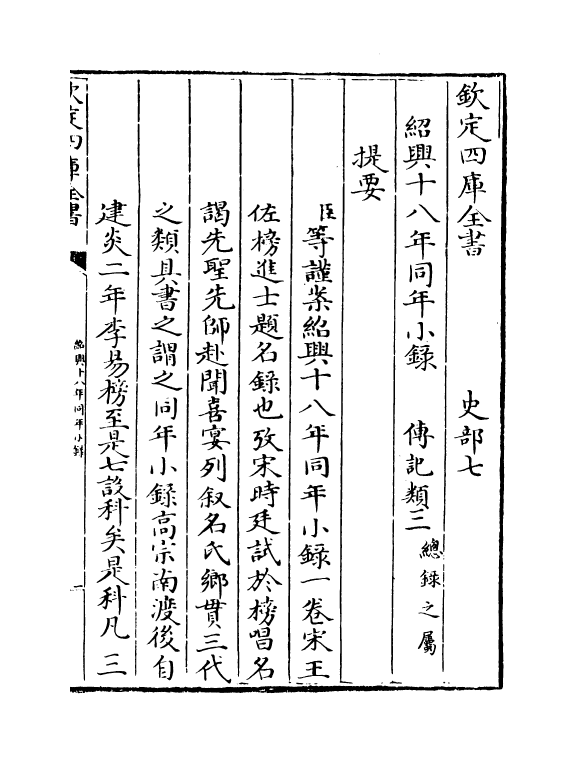 欽定四庫全書　史部七
紹興十八年同年小錄　傳記類三總錄之屬
提要
臣等謹案紹興十八年同年小錄一卷宋王
佐榜進士題名錄也攷宋時廷試於榜唱名
謁先聖先師赴聞喜宴列叙名氏鄉貫三代
之類具書之謂之同年小錄高宗南渡後自
建炎二年李易榜至是七設科矣是科凡三
欽定四庫全書
紹興十八年同年小錄
一